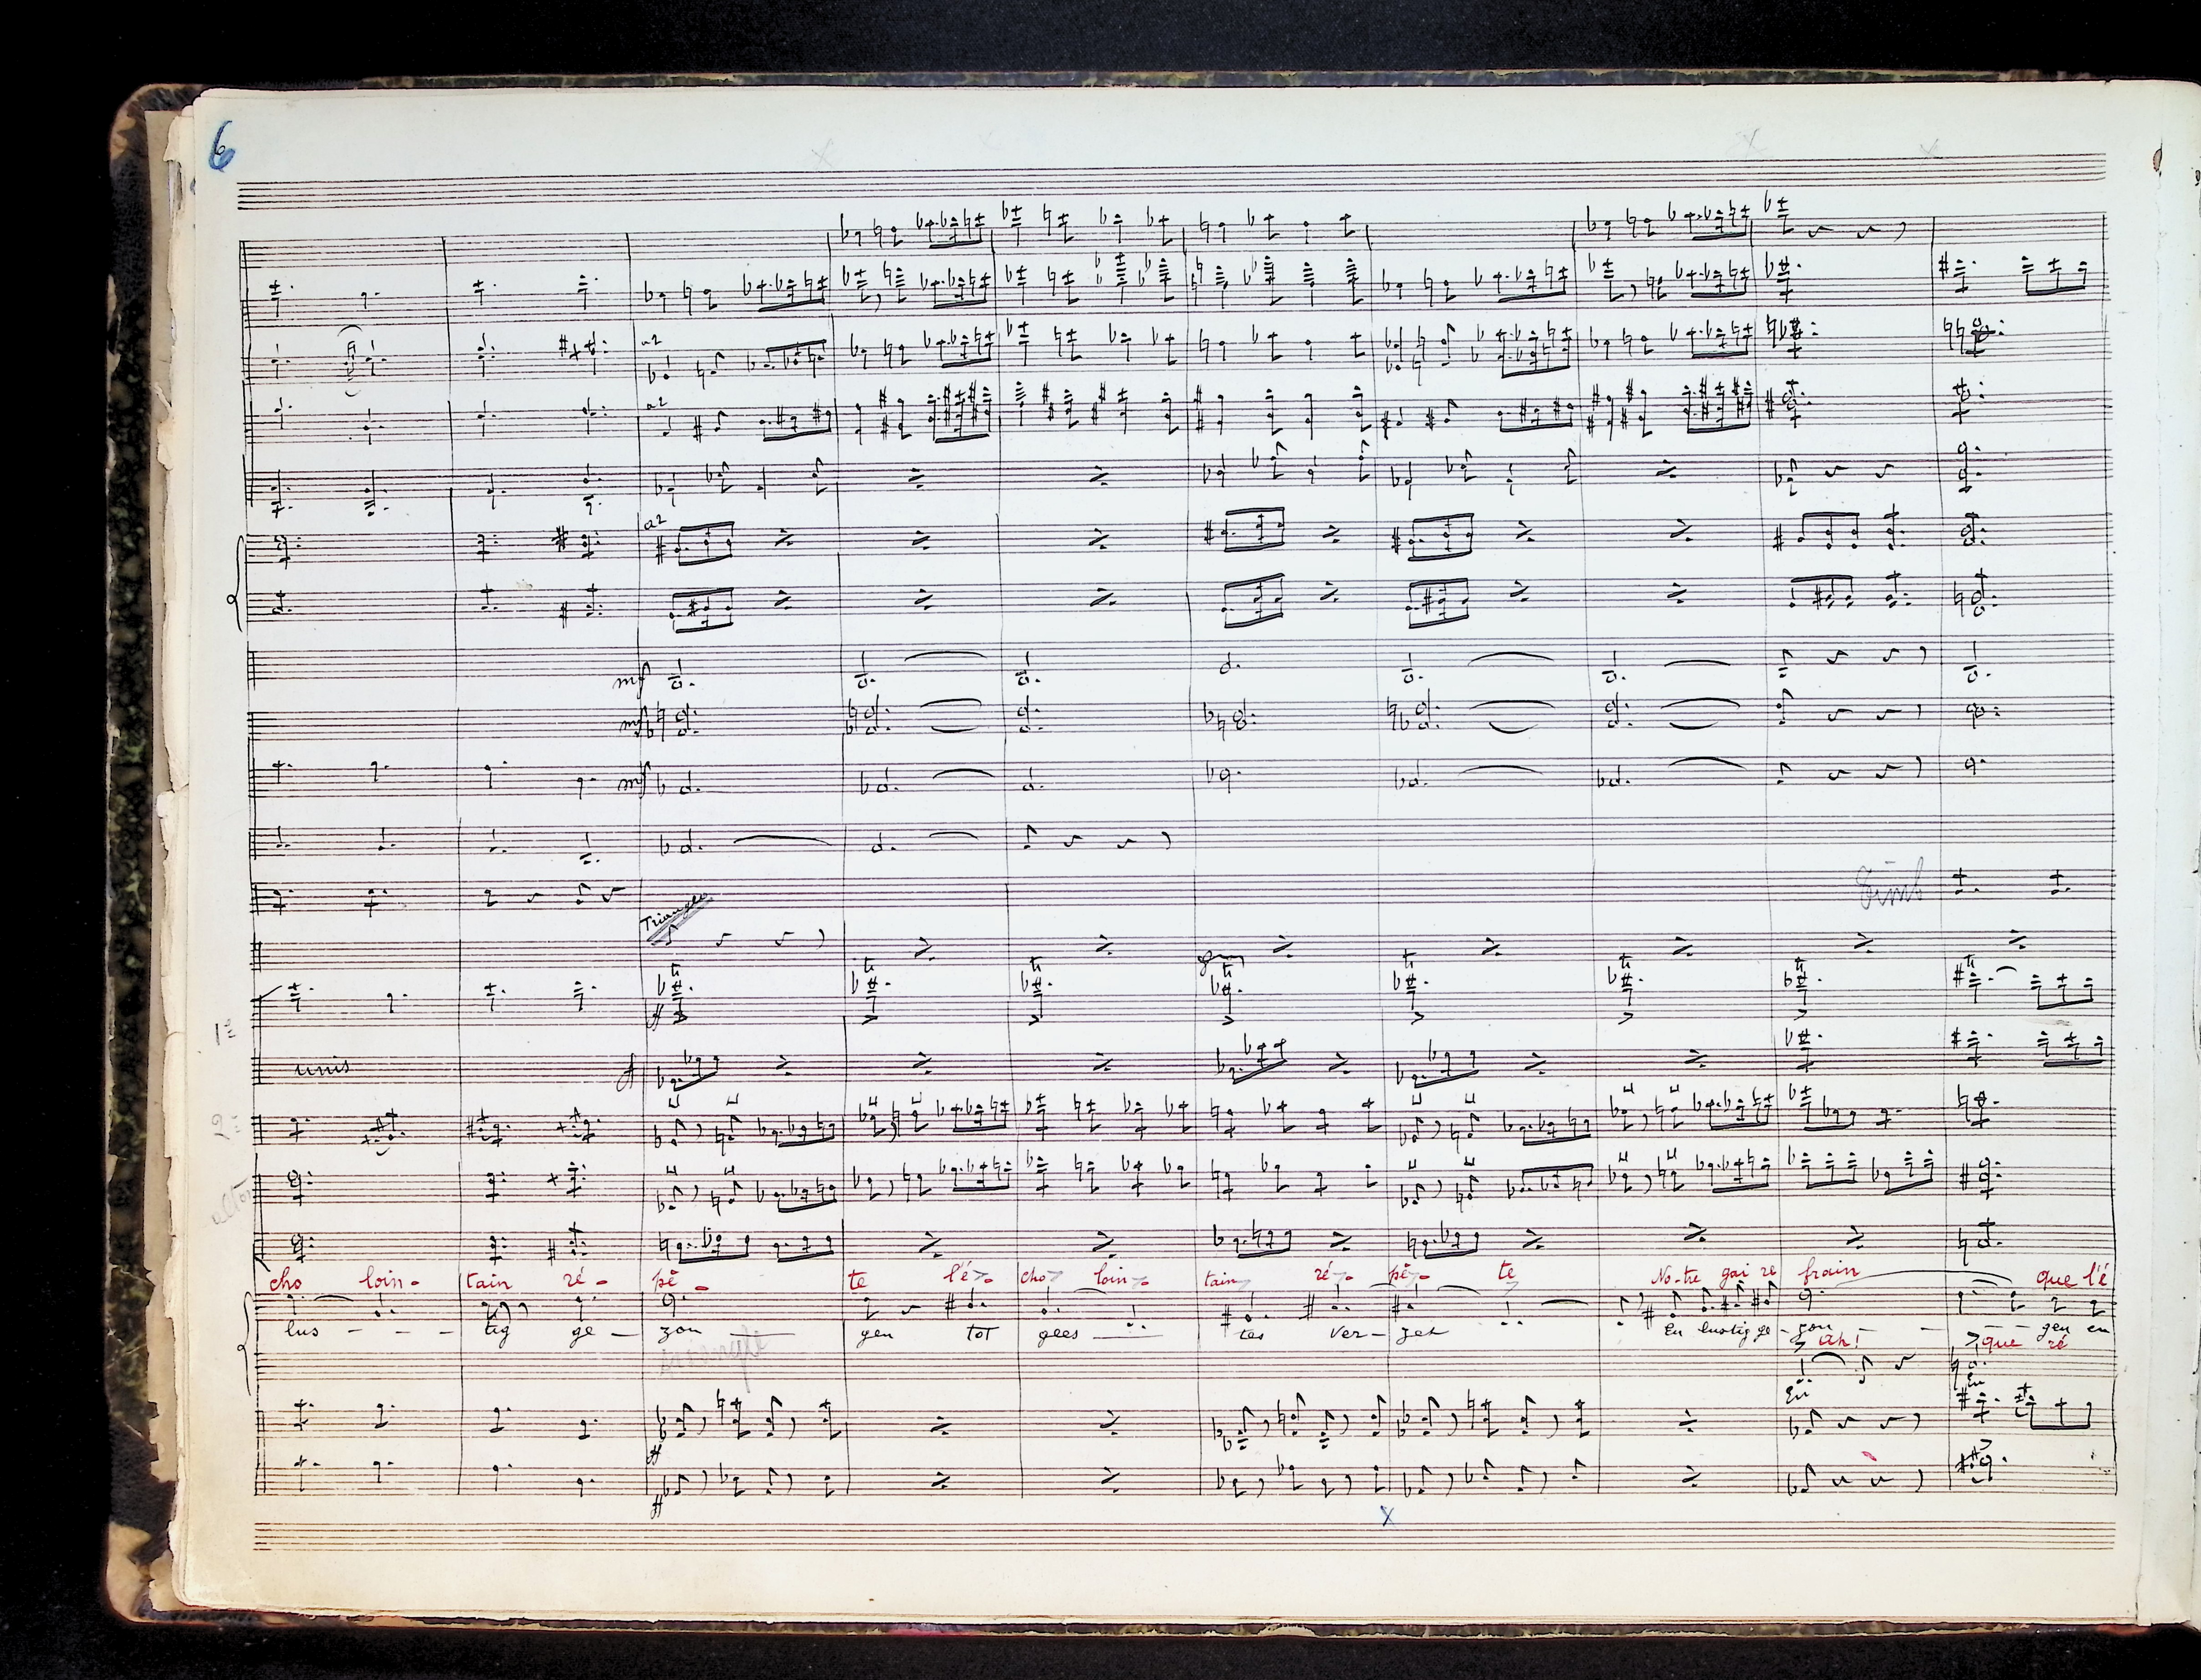 6
a2
a2
a2
mf
mf
mf
Timb
Triangle
ff
1e
unis
f
2e
altos
cho loin- tain ré- pè- te l'é- cho loin- tain ré- pè- te No-tre gai re frain que l'é
lus - - - tig ge - zon gen tot gees tes ver- zet En lustig ge - zon - - - gen en
ah! que ré
triangle
En En
ff
ff
x